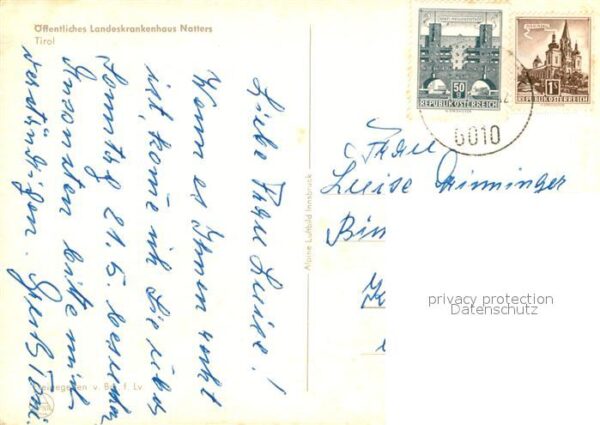 Öffentliches Landeskrankenhaus Natters
Tirol
Liebe Frau Luise!
Wenn es Ihnen recht
ist, komme ich Sie übers
Sonntag 21.5. besuchen
Ansonsten bitte mich
verständigen. Gruß Toni.
Alpine Luftbild Innsbruck
freigegeben v. f. Lv.
50 g
REPUBLIK ÖSTERREICH
1 S
REPUBLIK ÖSTERREICH
6010
Frau
Luise
Bin
privacy protection
Datenschutz